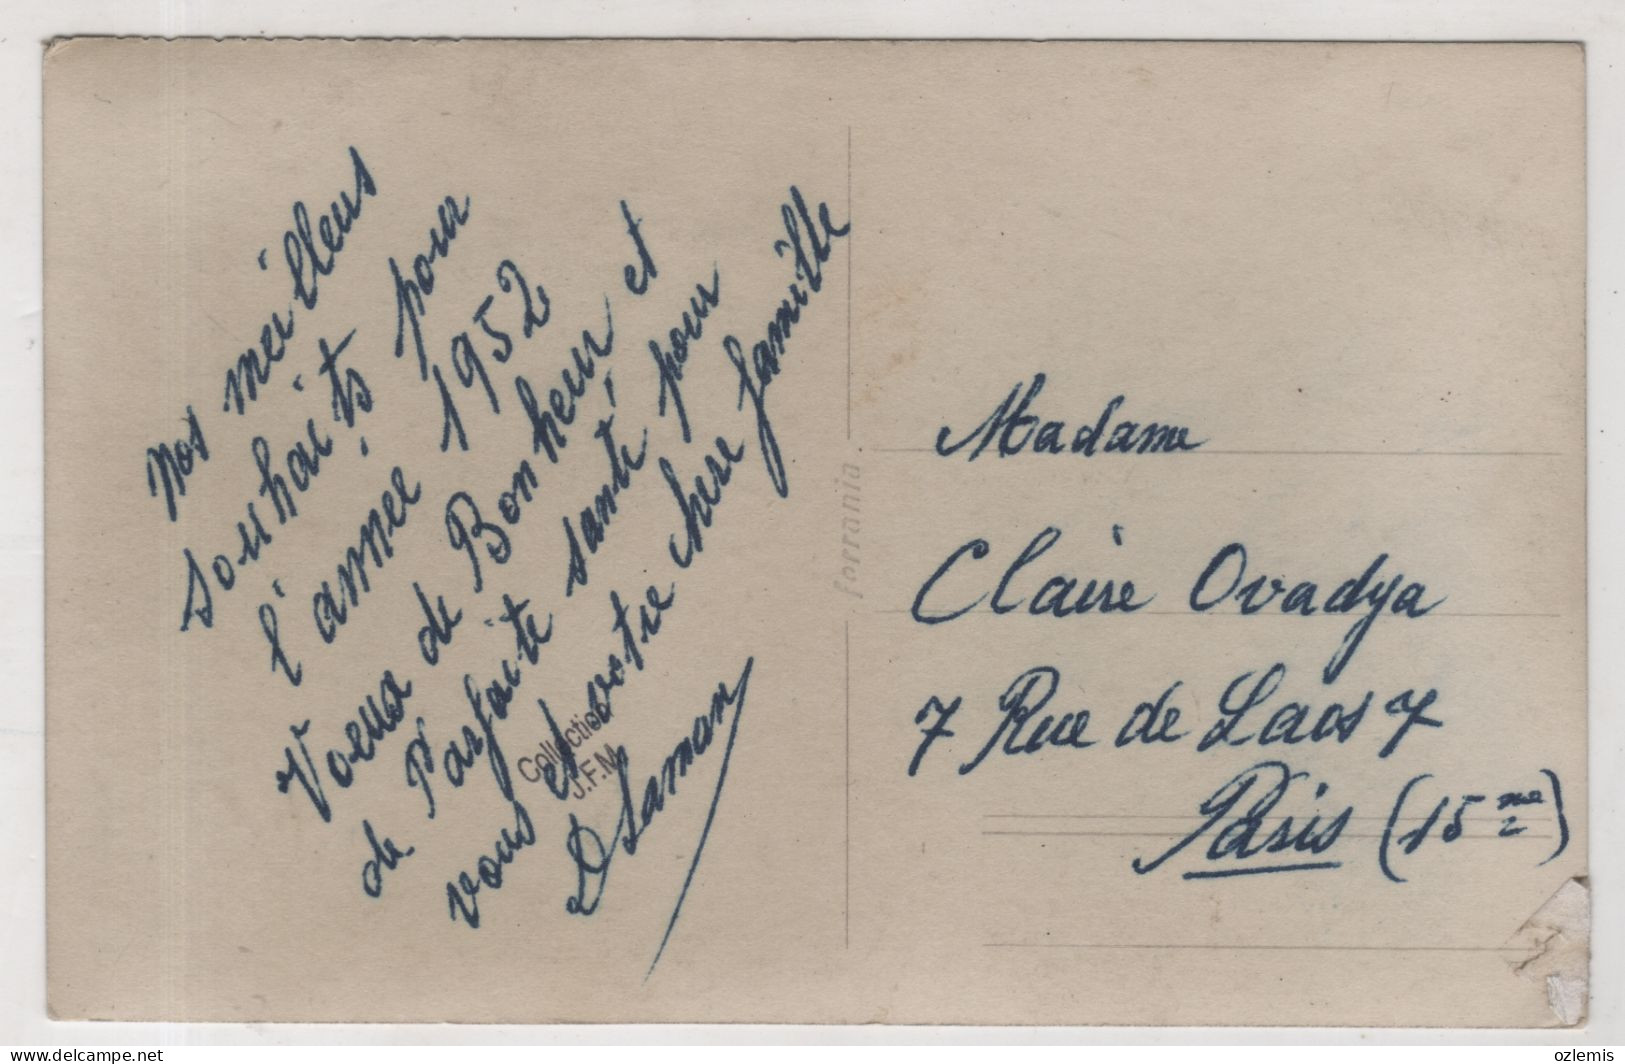 Nos meilleus
souhaits pour
l'annee 1952
Voeux de Bonheur et
de Parfaite santé pour
vous et votre chere famille
Collection
J.F.M.
ferrania
Madame
Claire Ovadya
7 Rue de Laos 7
Paris (15me)
delcampe.net
ozlemis